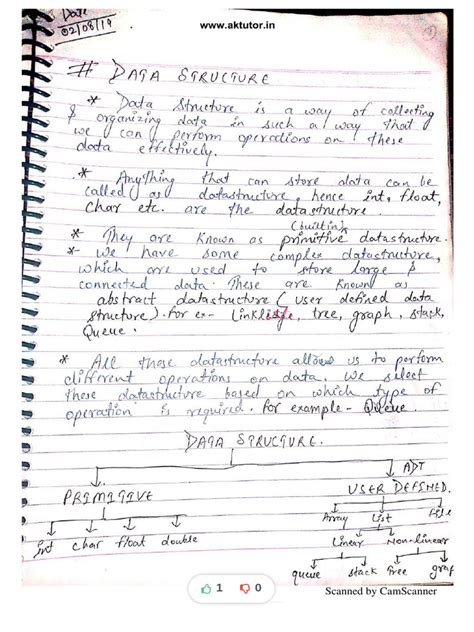 www.aktutor.in
Date
02/08/19
# DATA STRUCTURE
* Data Structure is a way of collecting
& organizing data in such a way that
we can perform operations on these
data effectively.
* Anything that can store data can be
called as datastructure, hence int, float,
char etc. are the datastructure.
(builtin)
* They are known as primitive datastructure.
* We have some complex datastructure,
which are used to store large &
connected data. These are known as
abstract datastructure (user defined data
structure). for ex- Linklist, tree, graph, stack,
Queue.
* All these datastructure allows us to perform
different operations on data. We select
these datastructure based on which type of
operation is required. for example - Queue.
DATA STRUCTURE.
ADT
PRIMITIVE USER DEFINED.
Array List File
int char float double
Linear Non-linear
queue stack Tree graph
1 0
Scanned by CamScanner